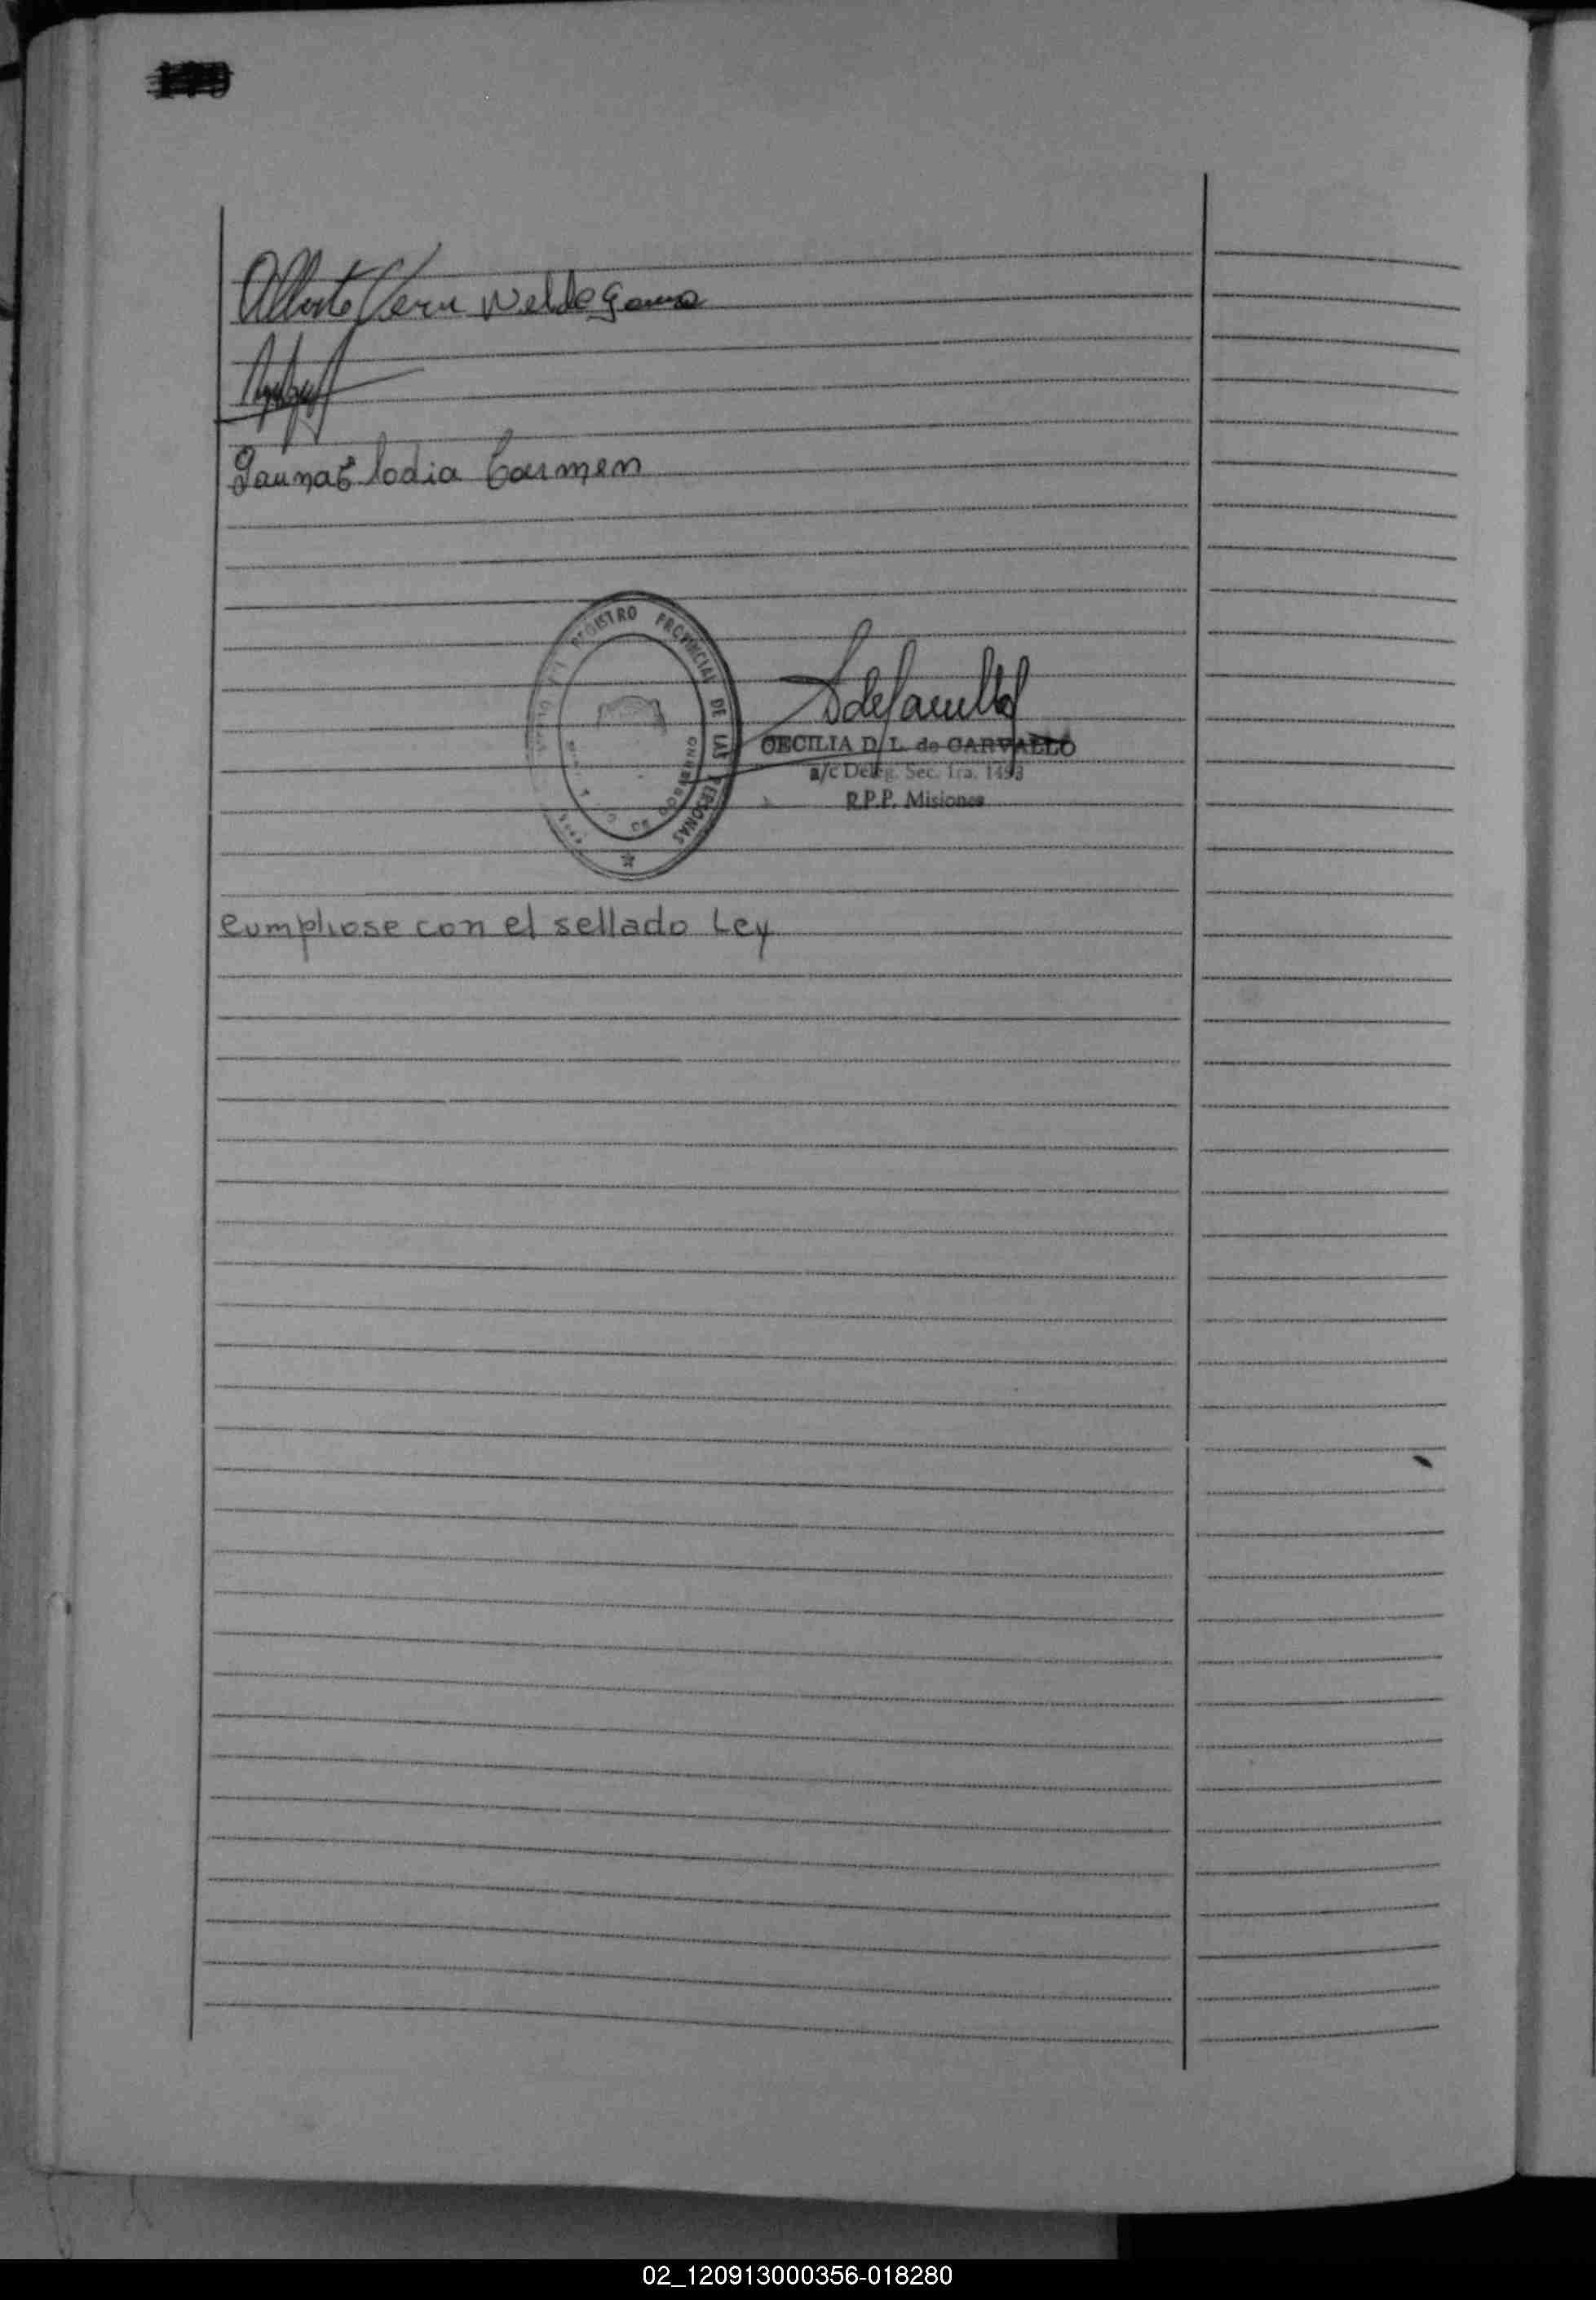 Alberto Vera Nelda Gauna
Gauna Elodia Carmen
REGISTRO PROVINCIAL DE LAS PERSONAS
CECILIA D. L. de CARVALLO
a/c Deleg. Sec. 1ra. 1493
R.P.P. Misiones
Cumpliose con el sellado Ley
02_120913000356-018280